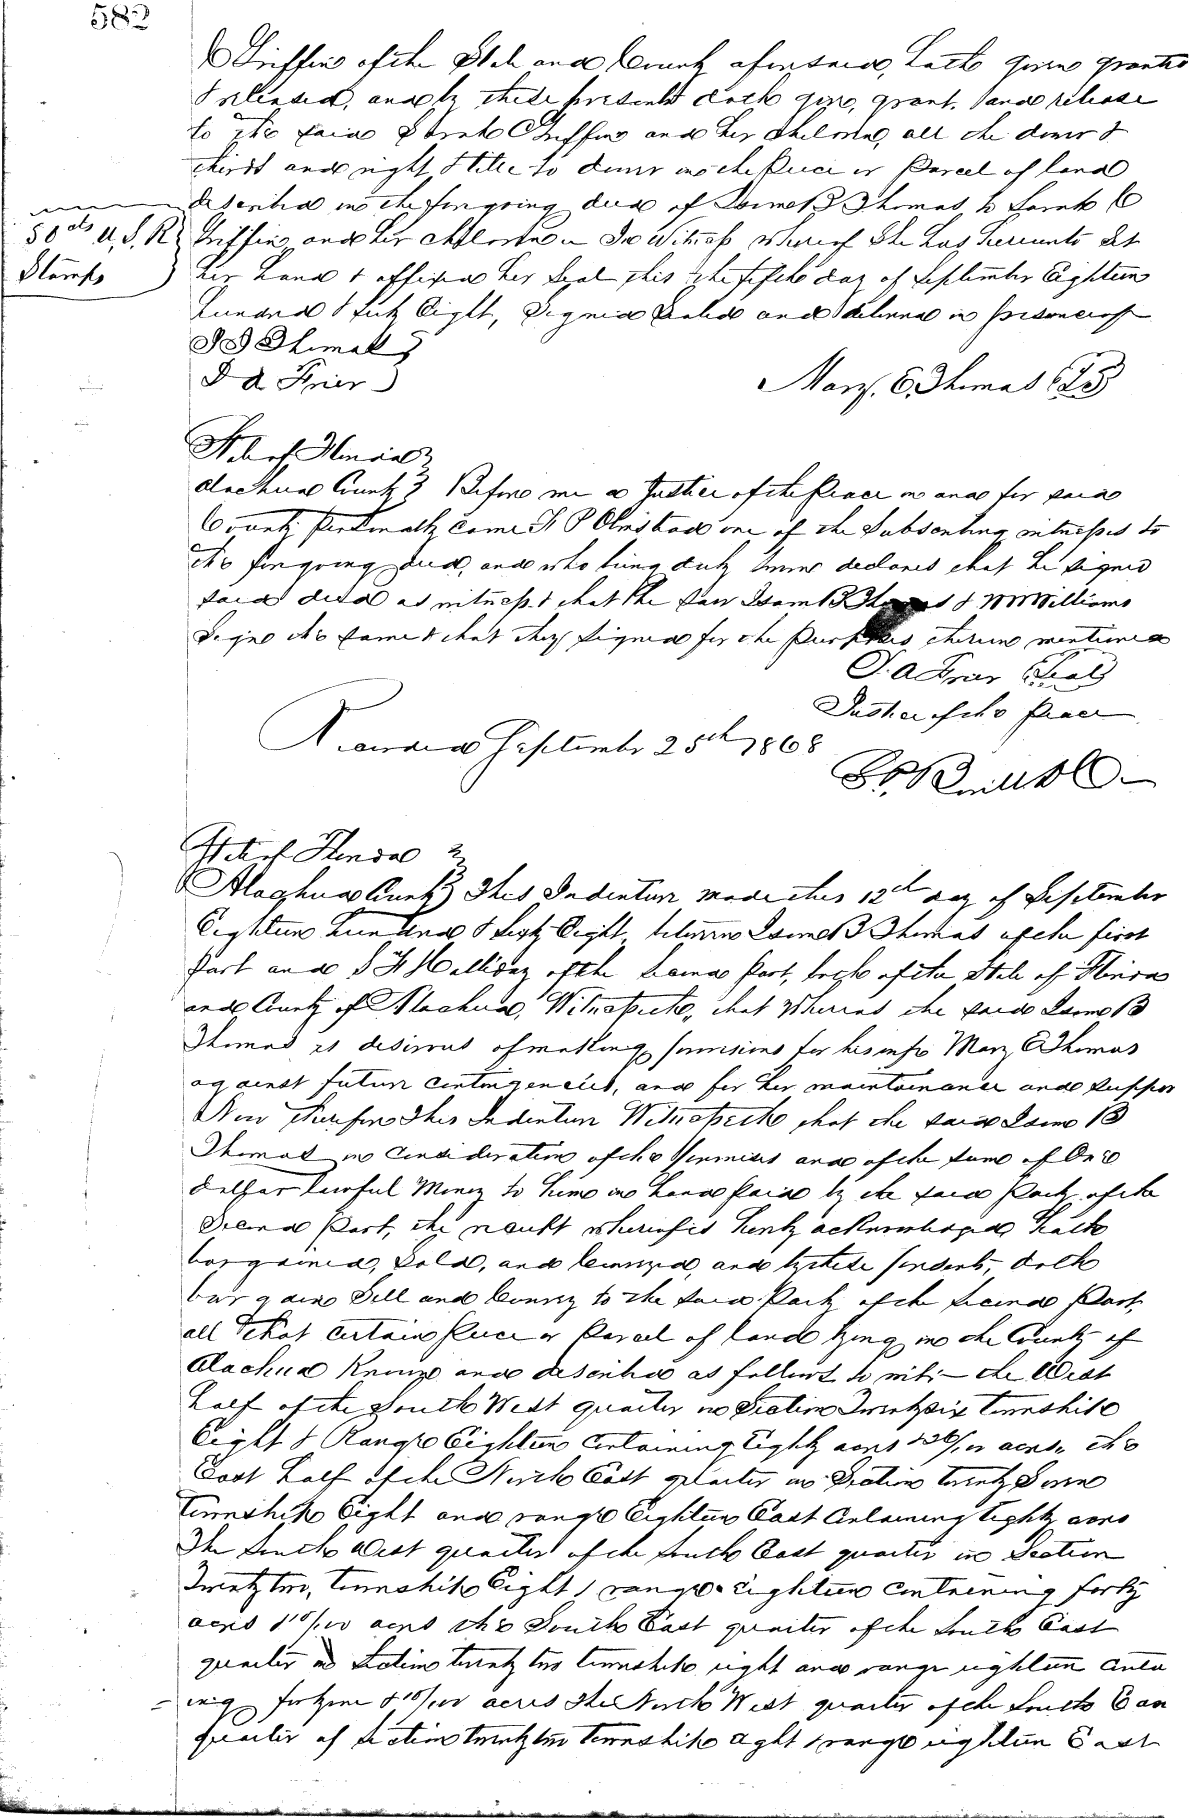 582
C Griffin of the State and County aforesaid, hath given granted
& released, and by these presents doth give, grant, and release
to the said Sarah C Griffin and her children, all the dower &
thirds and right & title to dower in the Piece or Parcel of land
described in the foregoing deed of Isom B Thomas to Sarah C
50 cts U.S.R Stamps
Griffin and her children In Witness whereof She has hereunto Set
her hand & affixed her Seal this the fifth day of September Eighteen
hundred & Sixty Eight, Signed Sealed and delivered in presence of
J J Thomas
J A Frier
Mary. E. Thomas LS
State of Florida
Alachua County Before me a Justice of the Peace in and for said
County personally came F P Olmstead one of the Subscribing witnesses to
the foregoing deed, and who being duly sworn declares that he signed
said deed as witness & that the said Isom B Thomas & W Williams
Signed the same & that they signed for the Purposes therein mentioned
J. A Frier (Seal)
Justice of the Peace
Recorded September 25th 1868
State of Florida
Alachua County This Indenture made this 12th day of September
Eighteen hundred & Sixty Eight between Isom B Thomas of the first
Part and S H Halliday of the Second Part, both of the State of Florida
and County of Alachua, Witnesseth, that Whereas the said Isom B
Thomas is desirous of making provisions for his wife Mary E Thomas
against future contingencies, and for her maintainance and suppor
Now therefore This Indenture Witnesseth that the said Isom B
Thomas in Consideration of the Premises and of the sum of One
dollar lawful Money to him in hand Paid by the said Party of the
Second Part, the receipt whereof is hereby acknowledged hath
bargained, Sold, and Conveyed, and by these presents, doth
bargain Sell and Convey to the said Party of the Second Part,
all that certain Piece or Parcel of land lying in the County of
Alachua Known and described as follows to wit:- the West
half of the South West quarter in Section Twenty six township
Eight & Range Eighteen Containing Eighty acres & 36/100 acres. the
East half of the North East quarter in Section twenty Seven
township Eight and range Eighteen East Containing Eighty acres
The South West quarter of the South East quarter in Section
Twenty two, township Eight & range Eighteen containing forty
acres & 10/100 acres the South East quarter of the South East
quarter in Section twenty two township eight and range eighteen contain
ing forty one & 10/100 acres The North West quarter of the South Eas
quarter of section twenty two township eight & range eighteen East